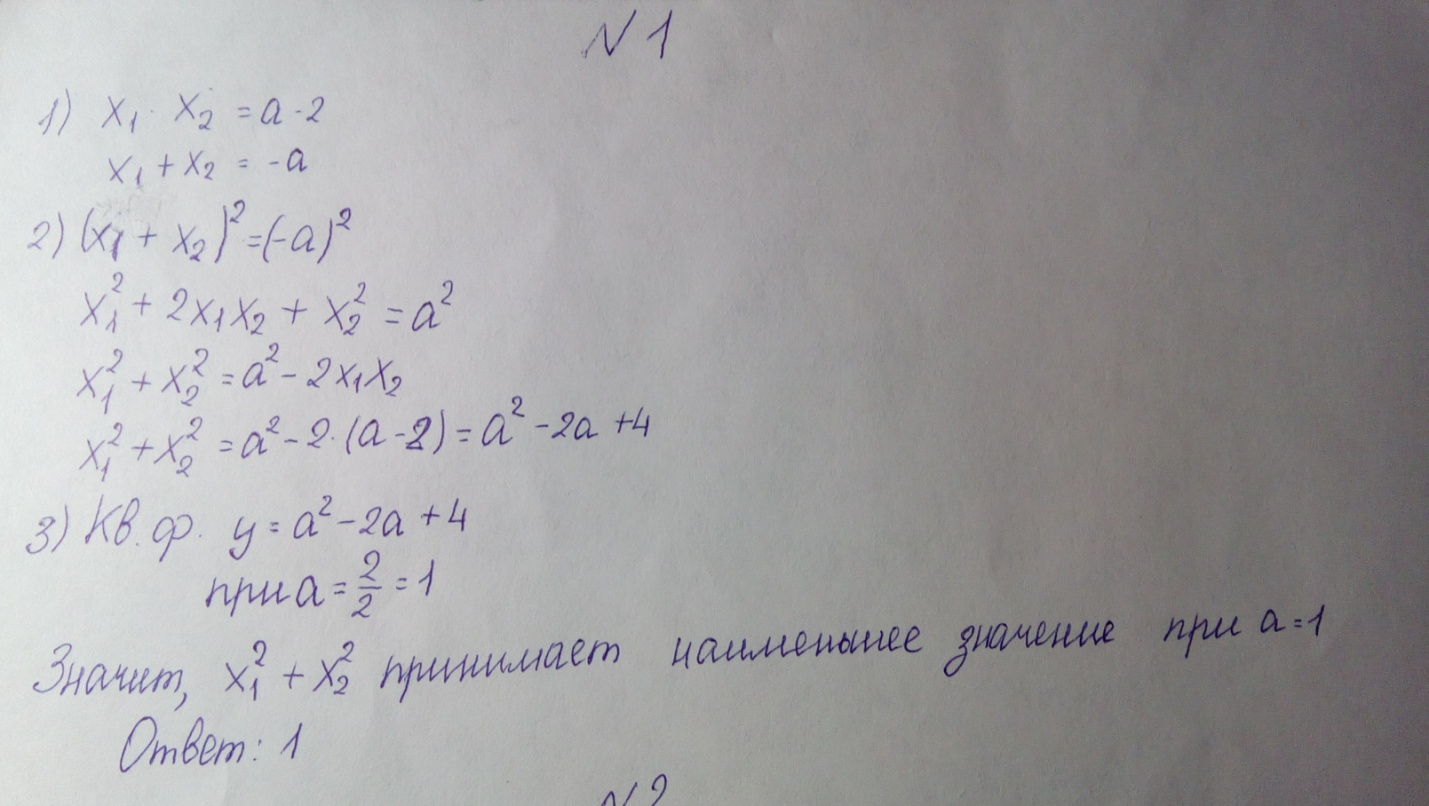 N 1
1) x₁ · x₂ = a - 2
x₁ + x₂ = -a
2) (x₁ + x₂)² = (-a)²
x₁² + 2x₁x₂ + x₂² = a²
x₁² + x₂² = a² - 2x₁x₂
x₁² + x₂² = a² - 2·(a - 2) = a² - 2a + 4
3) Кв. ф. y = a² - 2a + 4
при a = 2/2 = 1
Значит, x₁² + x₂² принимает наименьшее значение при a = 1
Ответ: 1
N 2